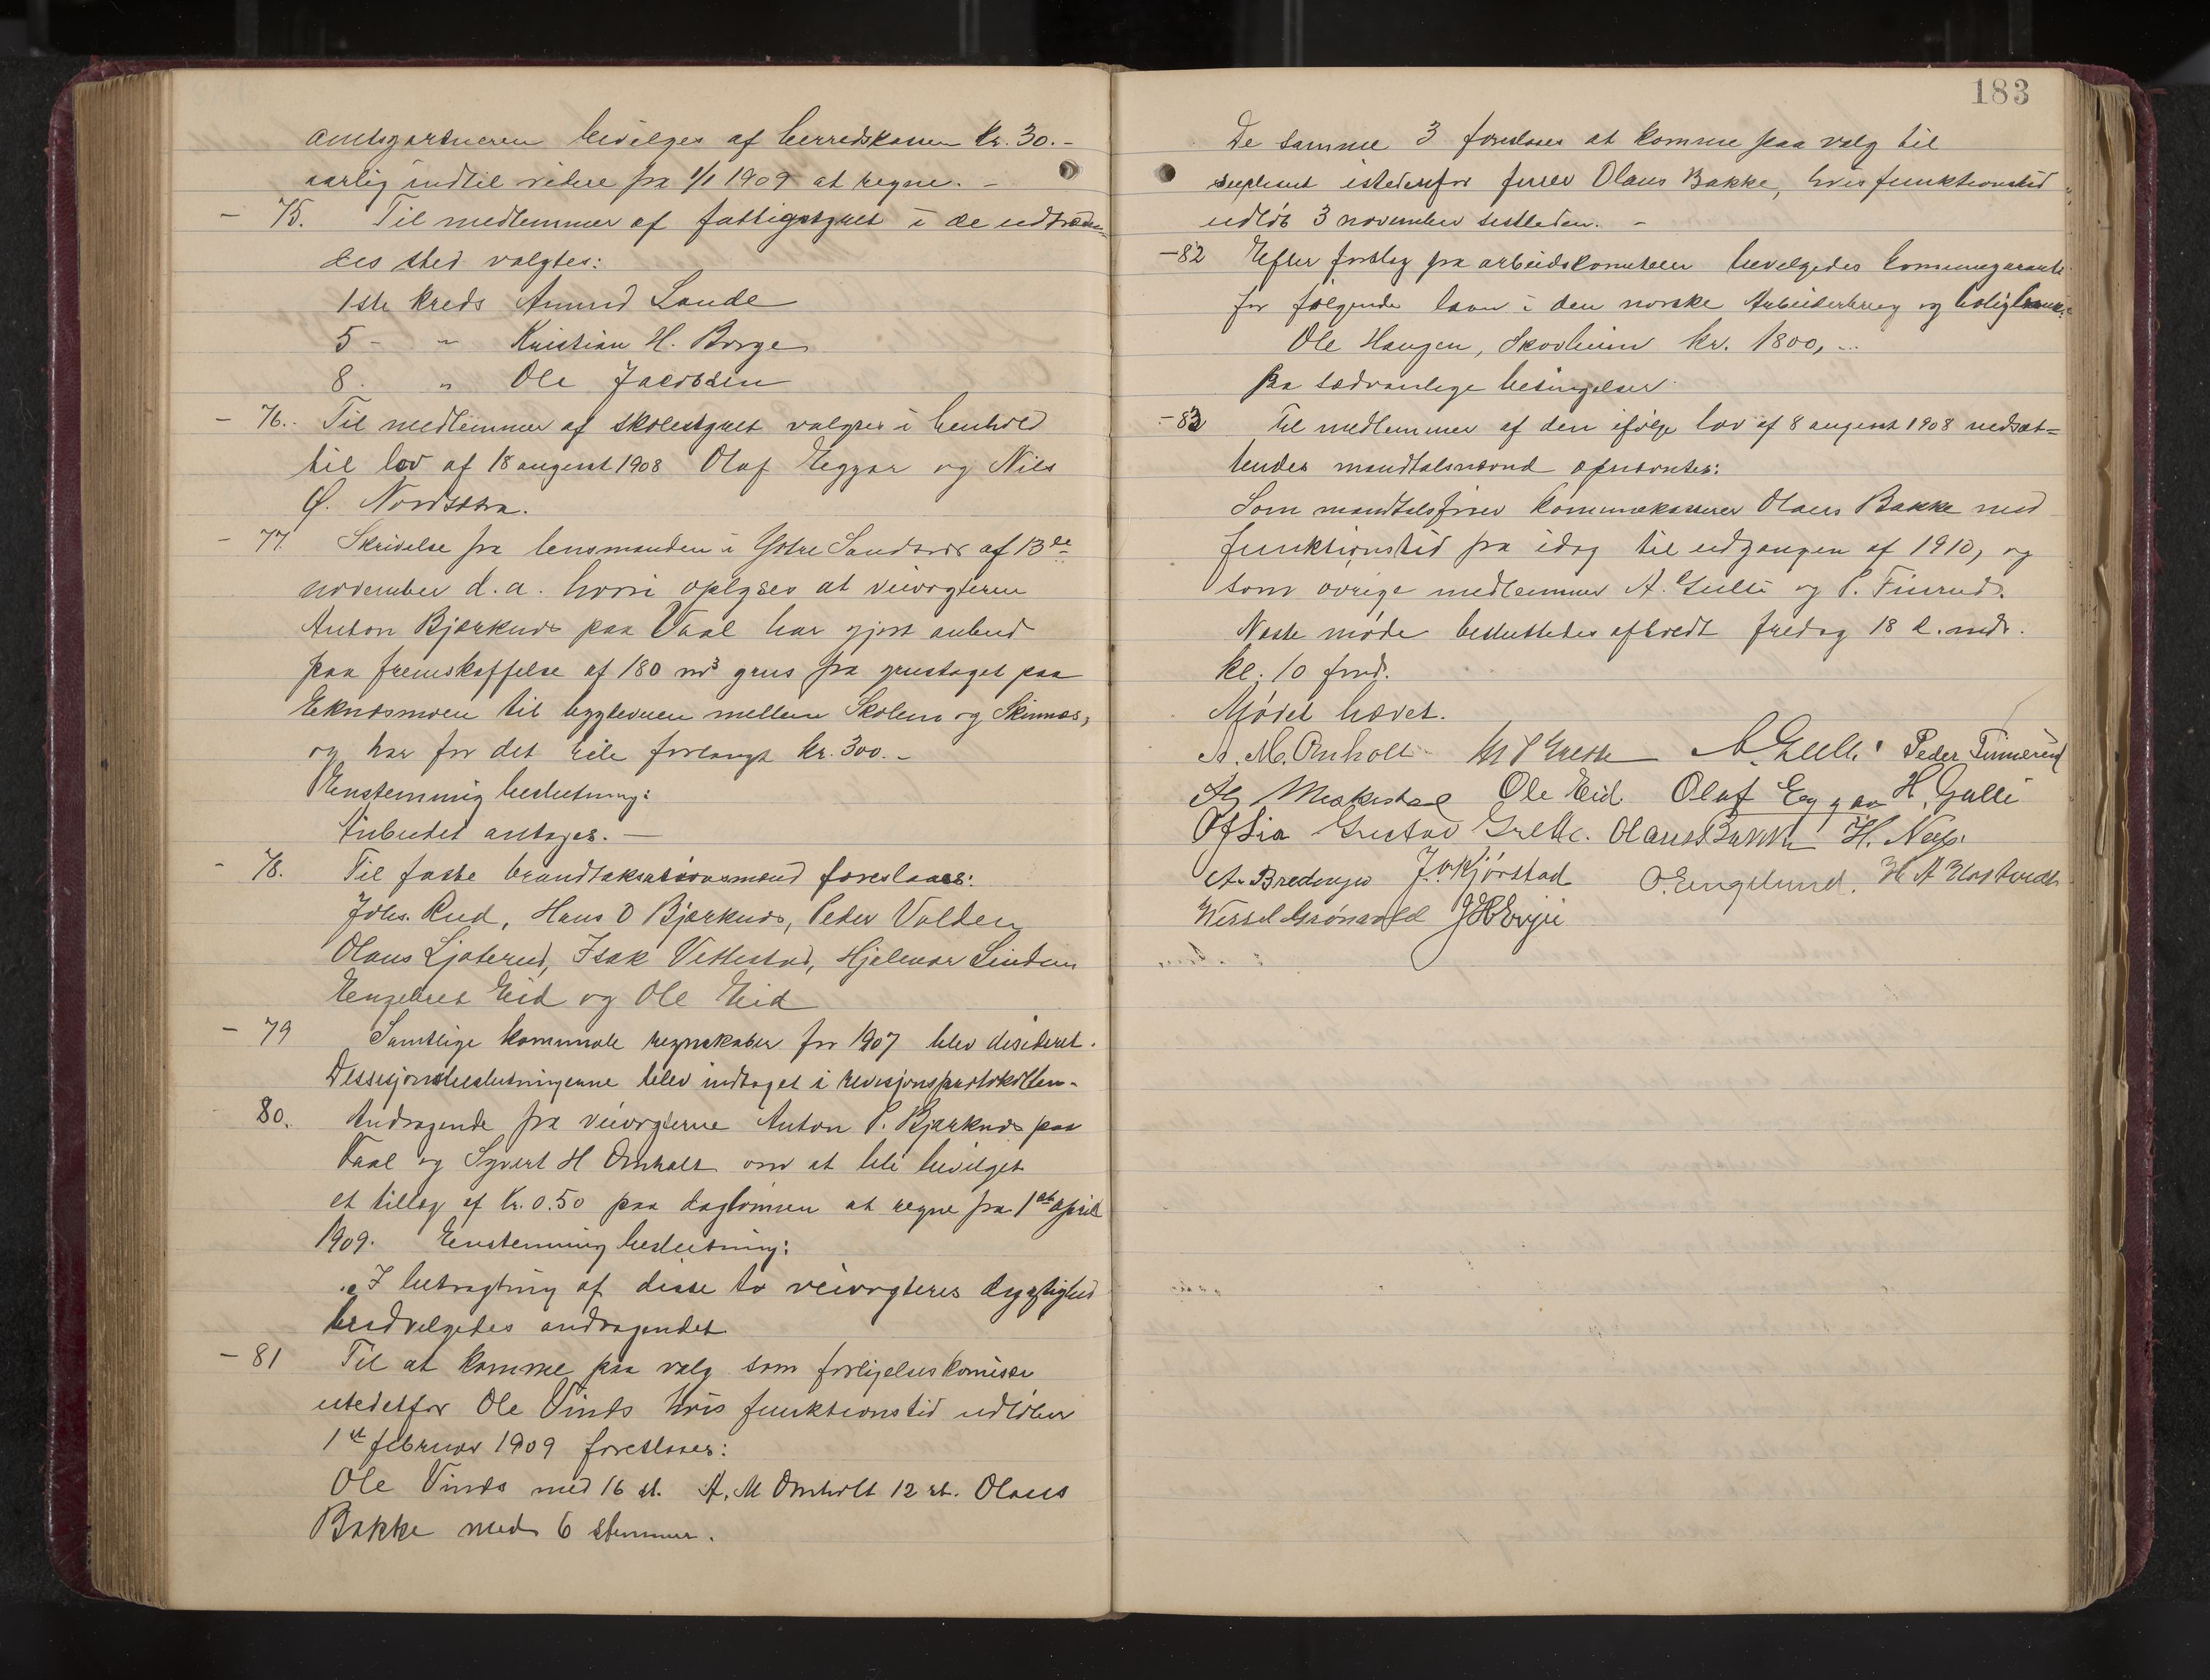 amtsgartneren bevilges af herredskassen kr. 30.-
aarlig indtil videre fra 1/1 1909 at regne. -
- 75. Til medlemmer af fattigstyret i de udtræden-
des sted valgtes:
1ste kreds Amund Lande
5 - " Kristian H. Borge
8. " Ole Jacobsen
- 76. Til medlemmer af skolestyret valgtes i henhold
til lov af 18 august 1908 Olaf Eggar og Nils
Ø. Nordsetra.
- 77. Skrivelse fra lensmanden i Ystre Sandsvær af 13de
november d.a. hvori oplyses at veivogteren
Anton Bjørknes paa Vaal har gjort anbud
paa fremskaffelse af 180 m3 grus fra grustaget paa
Eknesmoen til bygdeveien mellem Skolem og Skinnes,
og har for det hele forlangt kr. 300. -
Enstemmig beslutning:
Anbudet antages. -
- 78. Til faste brandtaksationsmænd foreslaaes:
Johs. Rud, Hans O Bjørknes, Peder Volden
Olaus Ljøterud, Isak Vettestad, Hjelmar Linden
Engebret Eid og Ole Eid
- 79 Samtlige kommunale regnskaber for 1907 blev desideret.
Dessisjonsbeslutningerne blev indtaget i revisjonsprotokollen.
80. Andragende fra veivogterne Anton P. Bjørknes paa
Vaal og Syvert H Omholt om at bli bevilget
et tillæg af kr. 0.50 paa daglønnen at regne fra 1ste april
1909. Enstemmig beslutning:
"I betragtning af disse to veivogteres dygtighed
bevilgedes andragendet
- 81 Til at komme paa valg som forligelseskomisær
istedetfor Ole Vinds hvis funktionstid udløber
1ste februar 1909 foreslaaes:
Ole Vinds med 16 st. A. M Omholt 12 st. Olaus
Bakke med 6 stemmer.
183
De samme 3 foreslaaes at komme paa valg til
supleant istedenfor Olaus Bakke, hvis funktionstid
udløb 3 november sistleden. -
- 82 Efter forslag fra arbeidskomiteen bevilgedes komunegaranti
for følgende laan i den norske Arbeiderbrug og boligbank:
Ole Haugen, Skovheim kr. 1800,-
paa sædvanlige betingelser
- 83 Til medlemmer af den ifølge lov af 8 august 1908 nedsæt=
tendes mandtalsnævnd opnævntes:
Som mandtalsfører kommunekasserer Olaus Bakke med
funktionstid fra idag til udgangen af 1910, og
som øvrige medlemmer A. Gulli og P. Finnerud.
Næste møde besluttedes afholdt fredag 18 d. mdr.
kl. 10 fmd.
Mødet hævet.
A. M. Omholt A. Gulli Peder Finnerud
Ole Eid Olaf Eggar H. Gulli
O J Lia Gustav Grette. Olaus Bakke H. Næss
A. Bredesen J. O. Kjørstad O. Engelund.
Wessel Grønvold J H Evju